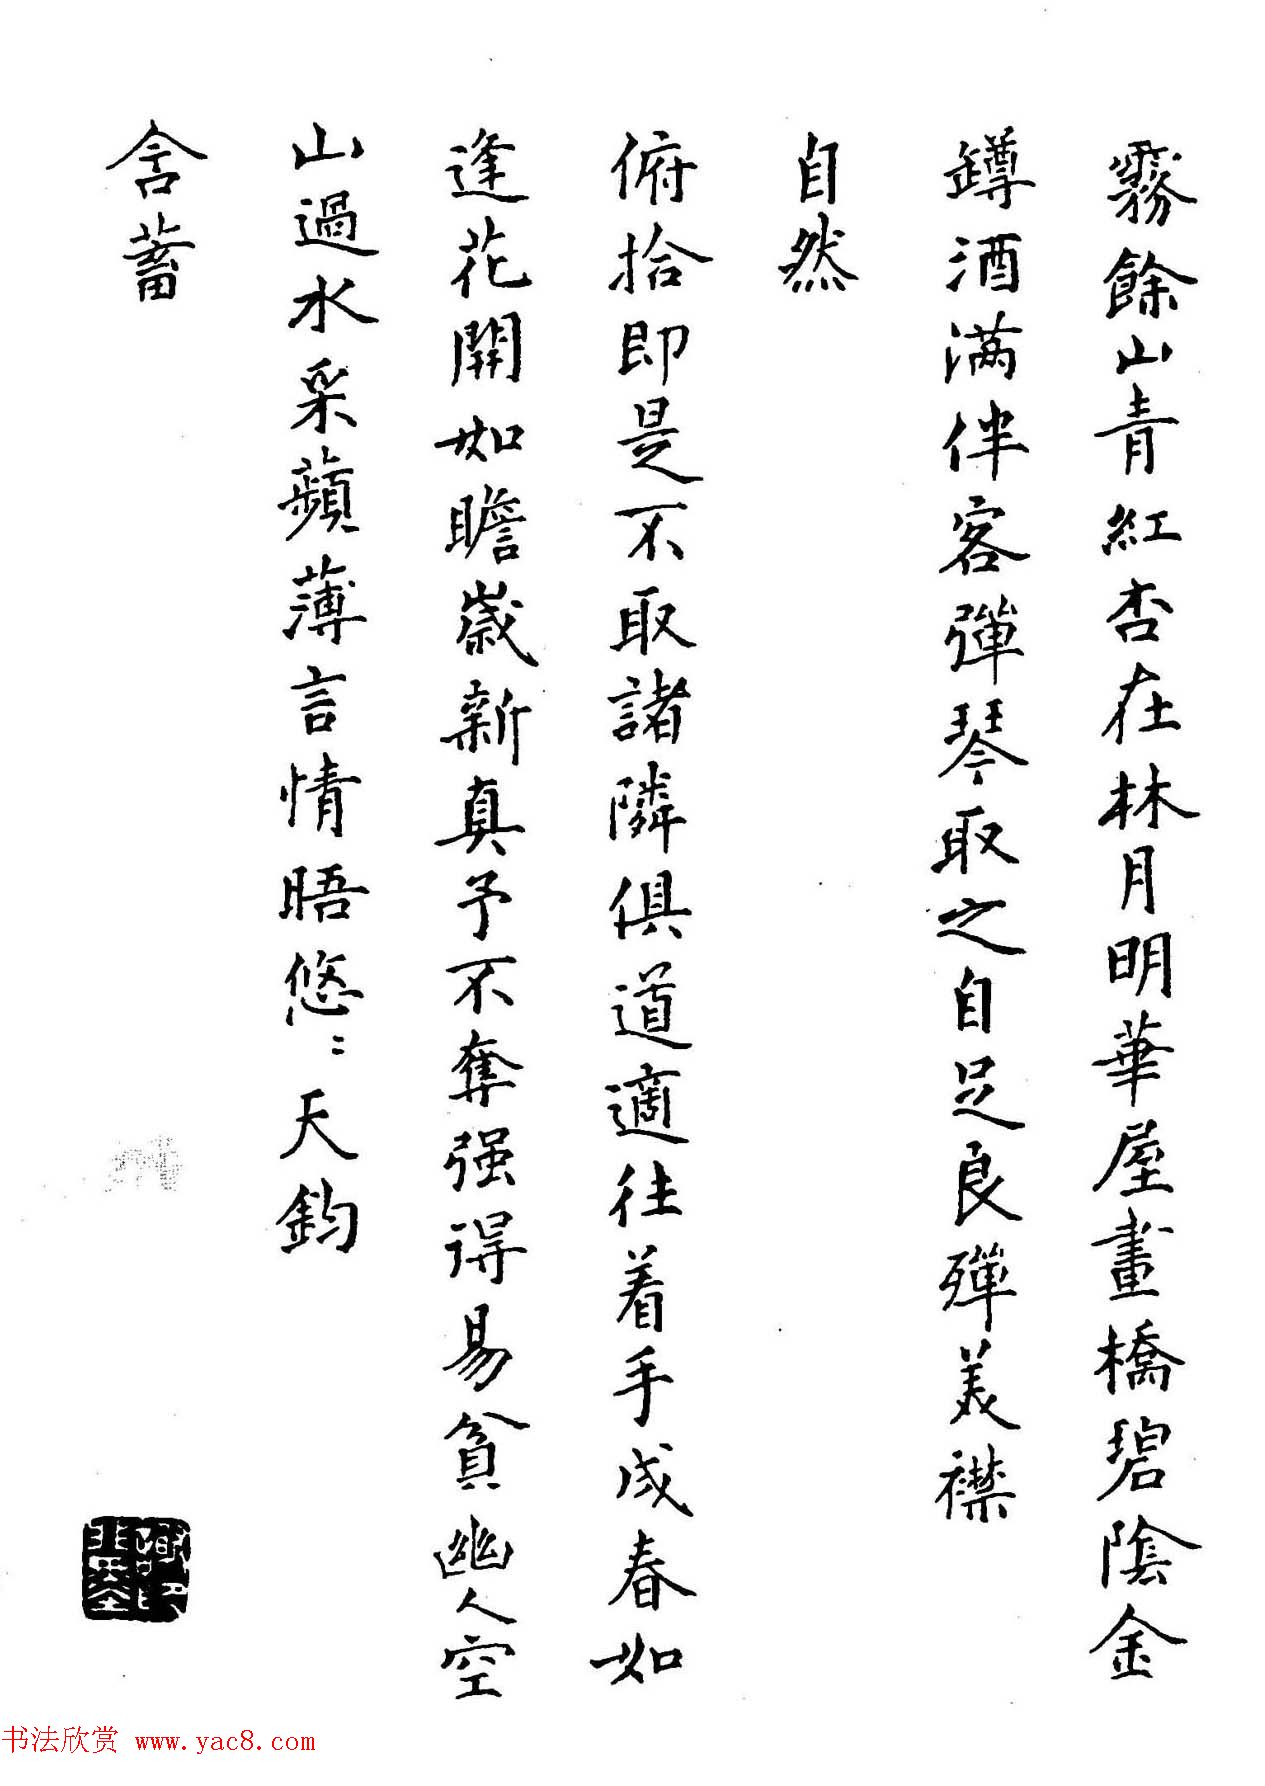 霧餘山青紅杏在林月明華屋畫橋碧陰金
罇酒满伴客彈琴取之自足良殫美襟
自然
俯拾即是不取諸隣俱道適往着手成春如
逢花開如瞻歲新真予不奪强得易貧幽人空
山過水采蘋薄言情晤悠〻天鈞
含蓄
书法欣赏 www.yac8.com